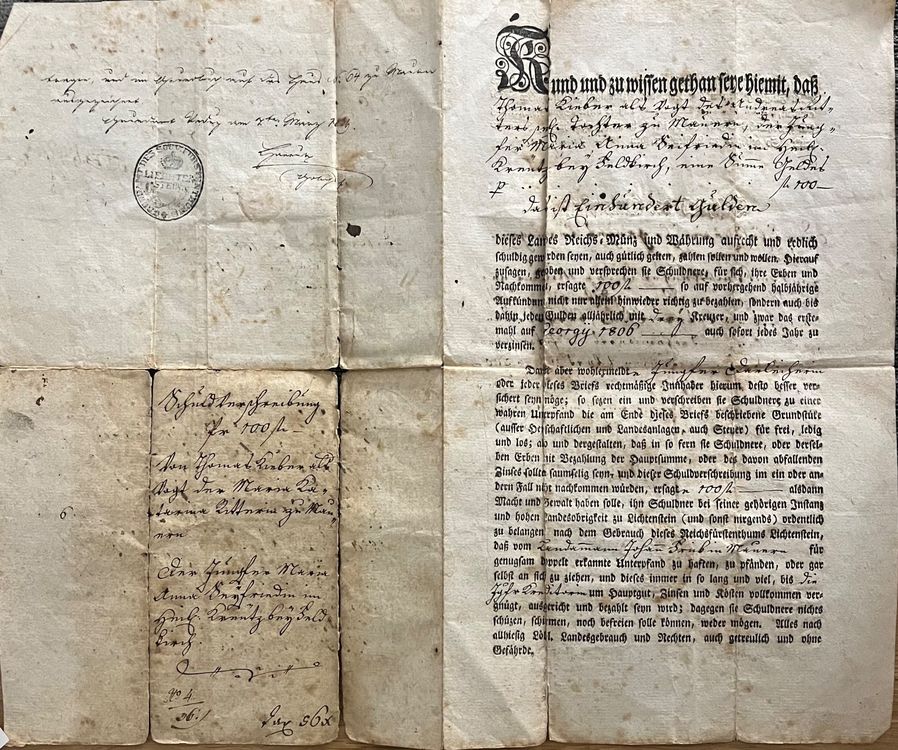 tragen, und im Grundbuch auf das Haus N. 64 zu Mauren
am 7ten März
GRUNDBUCHSAMT DES SOUV. FÜRSTENTHUMS
LIECHTEN
STEIN
Kund und zu wissen gethan seye hiemit, daß
Thomas Kieber als Vogt des Andreas Rit-
ters sel. Tochter zu Mauren, der Jung-
fer Maria Anna Seyfriedin im Heil.
Kreutz bey Feldkirch, eine Summe Geldes
p fl 100—
das ist Einhundert Gulden
dieses Landes Reichs-Münz und Währung aufrecht und redlich
schuldig geworden seyen, auch gütlich gelten, zahlen sollen und wollen. Hierauf
zusagen, geloben und versprechen sie Schuldnere, für sich, ihre Erben und
Nachkommen, ersagte 100 fl — so auf vorhergehend halbjährige
Aufkündung nicht nur allein hinwieder richtig zu bezahlen, sondern auch bis
dahin jeden Gulden alljährlich mit Drey Kreuzer, und zwar das erste-
mahl auf Georgy 1806 — auch sofort jedes Jahr zu
verzinsen.
Damit aber wohlermeldte Jungfer Darleiherin
oder jeder dieses Briefs rechtmäßige Innhaber hierum desto besser ver-
sichert seyn möge; so setzen ein und verschreiben sie Schuldnere zu einer
wahren Unterpfand die am Ende dieses Briefs beschriebene Grundstüke
(ausser Herschaftlichen und Landesanlagen, auch Steuer) für frei, ledig
und los; also und dergestalten, daß in so fern sie Schuldnere, oder dersel-
ben Erben mit Bezahlung der Hauptsumme, oder des davon abfallenden
Zinses sollte saumselig seyn, und dieser Schuldverschreibung im ein oder an-
dern Fall nicht nachkommen würden, ersagte 100 fl — alsdann
Macht und Gewalt haben solle, ihn Schuldner bei seiner gehörigen Instanz
und hohen Landesobrigkeit zu Lichtenstein (und sonst nirgends) ordentlich
zu belangen nach dem Gebrauch dieses Reichsfürstenthums Lichtenstein,
daß vom Landamann Johann in Mauren für
genugsam doppelt erkannte Unterpfand zu haften, zu pfänden, oder gar
selbst an sich zu ziehen, und dieses immer in so lang und viel, bis die
Jgfr Kreditorin um Hauptgut, Zinsen und Kösten vollkommen ver-
gnügt, ausgericht und bezahlt seyn wird; dagegen sie Schuldnere nichts
schüzen, schirmen, noch befreien solle können, weder mögen. Alles nach
allhiesig Löbl. Landesgebrauch und Rechten, auch getreulich und ohne
Gefährde.
Schuldverschreibung
Pr 100 fl
Von Thomas Kieber als
Vogt der Maria Ka-
tarina Ritterin zu Mau-
ren
Der Jungfer Maria
Anna Seyfriedin im
Heil. Kreutz bey Feld-
kirch.
6
No 4
Tax 56 x